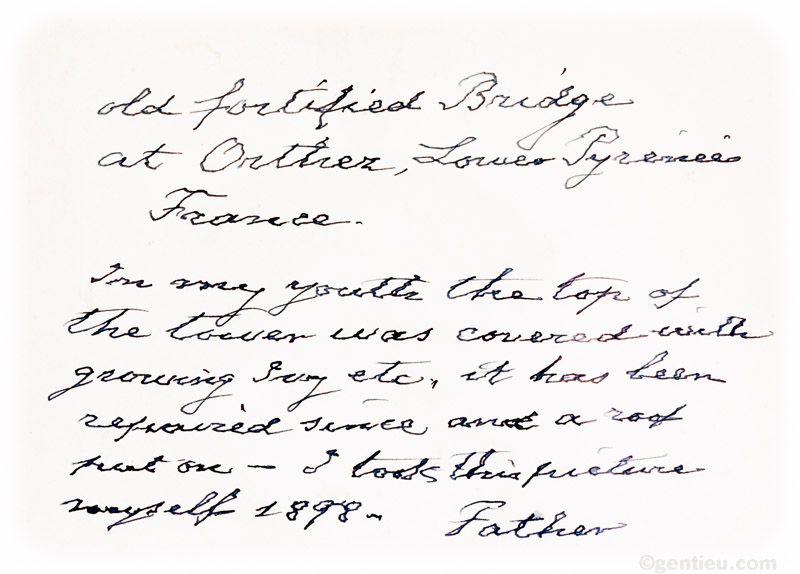 old fortified Bridge
at Orthez, Lower Pyrénées
France.
In my youth the top of
the tower was covered with
growing Ivy etc., it has been
repaired since and a roof
put on – I took this picture
myself 1898.
Father
©gentieu.com